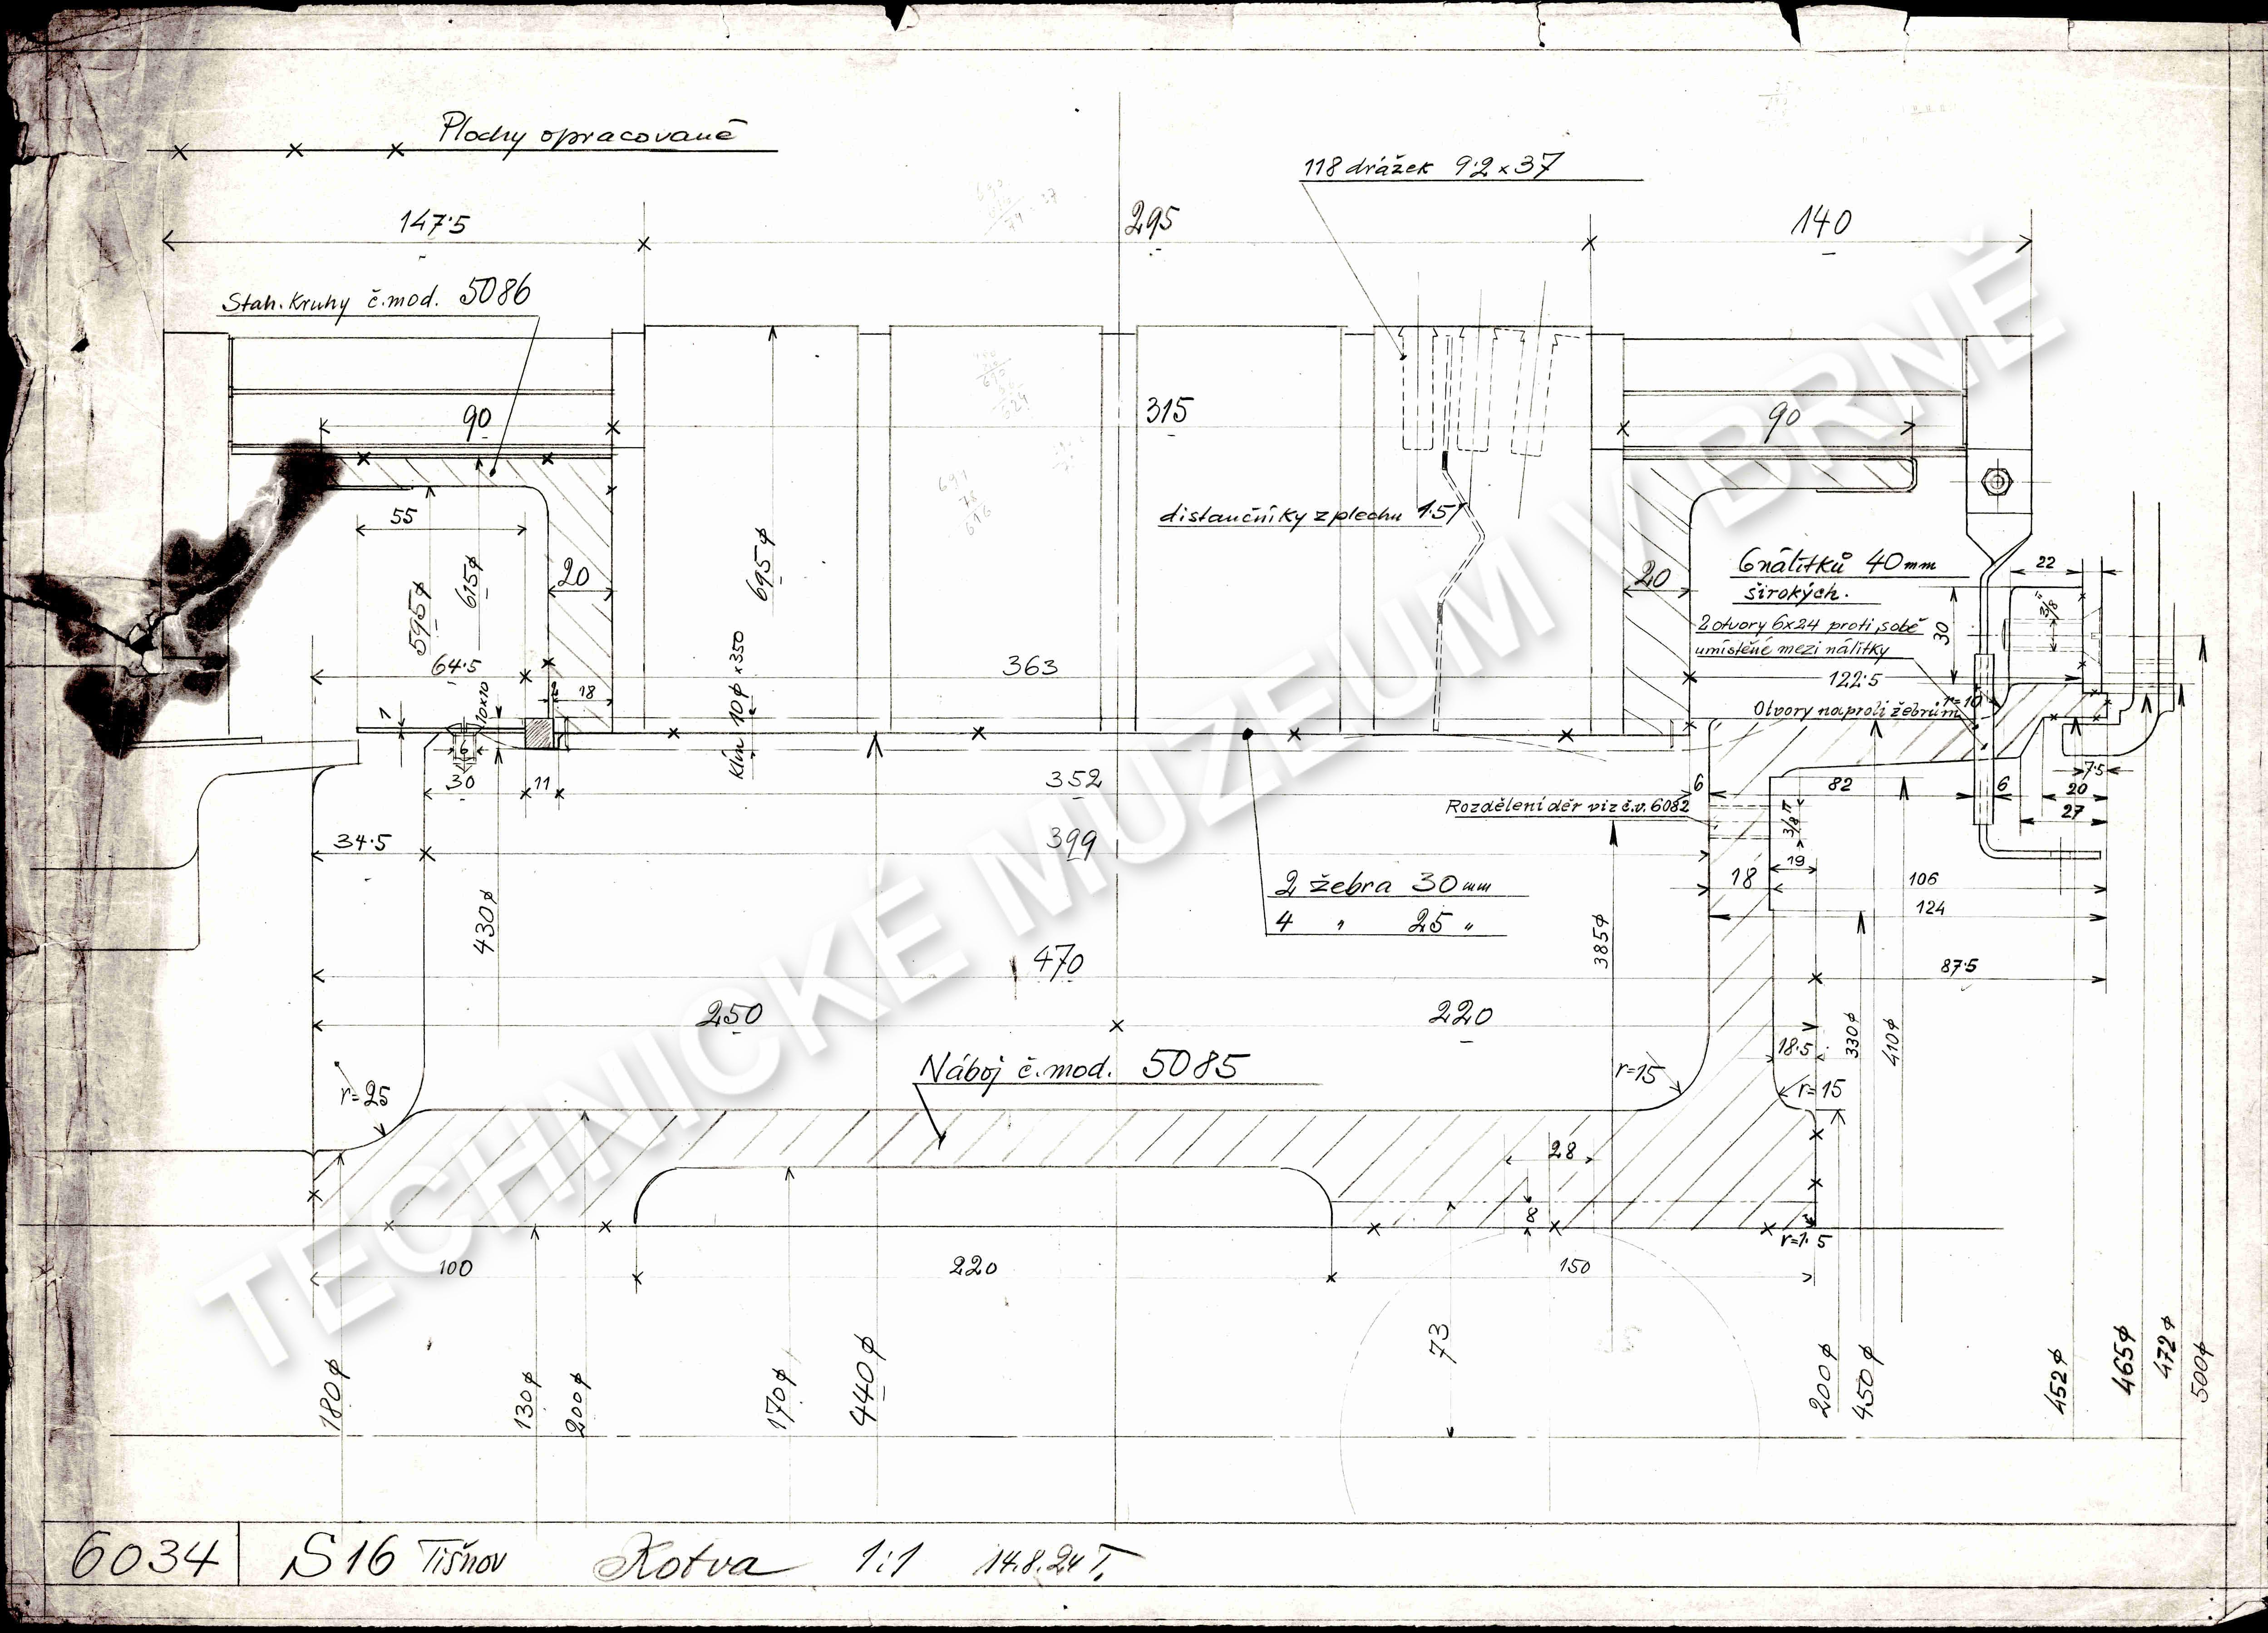 Plochy opracované
118 drážek 9·2 x 37
147·5
295
140
Stah. Kruhy č.mod. 5086
90
315
90
distančníky z plechu 1·5
55
595ϕ
615ϕ
20
695ϕ
20
6 nálitků 40 mm
širokých.
22
3/8"
30
2 otvory 6x24 proti sobě
umístěné mezi nálitky
64·5
18
363
122·5
r=10
Otvory naproti žebrům
1
10x10
Klín 10ϕ x 350
6
30
11
352
6
82
6
7·5
20
27
Rozdělení děr viz č.v. 6082
3/8"
34·5
399
19
18
106
124
2 žebra 30 mm
4 " 25 "
430ϕ
385ϕ
470
87·5
250
220
18·5
330ϕ
410ϕ
Náboj č.mod. 5085
r=15
r=15
r=25
28
8
r=1·5
100
220
150
73
180ϕ
130ϕ
200ϕ
170ϕ
440ϕ
200ϕ
450ϕ
452ϕ
465ϕ
472ϕ
500ϕ
6034 S16 Tišnov Kotva 1:1 14.8.24 T.
TECHNICKÉ MUZEUM V BRNĚ